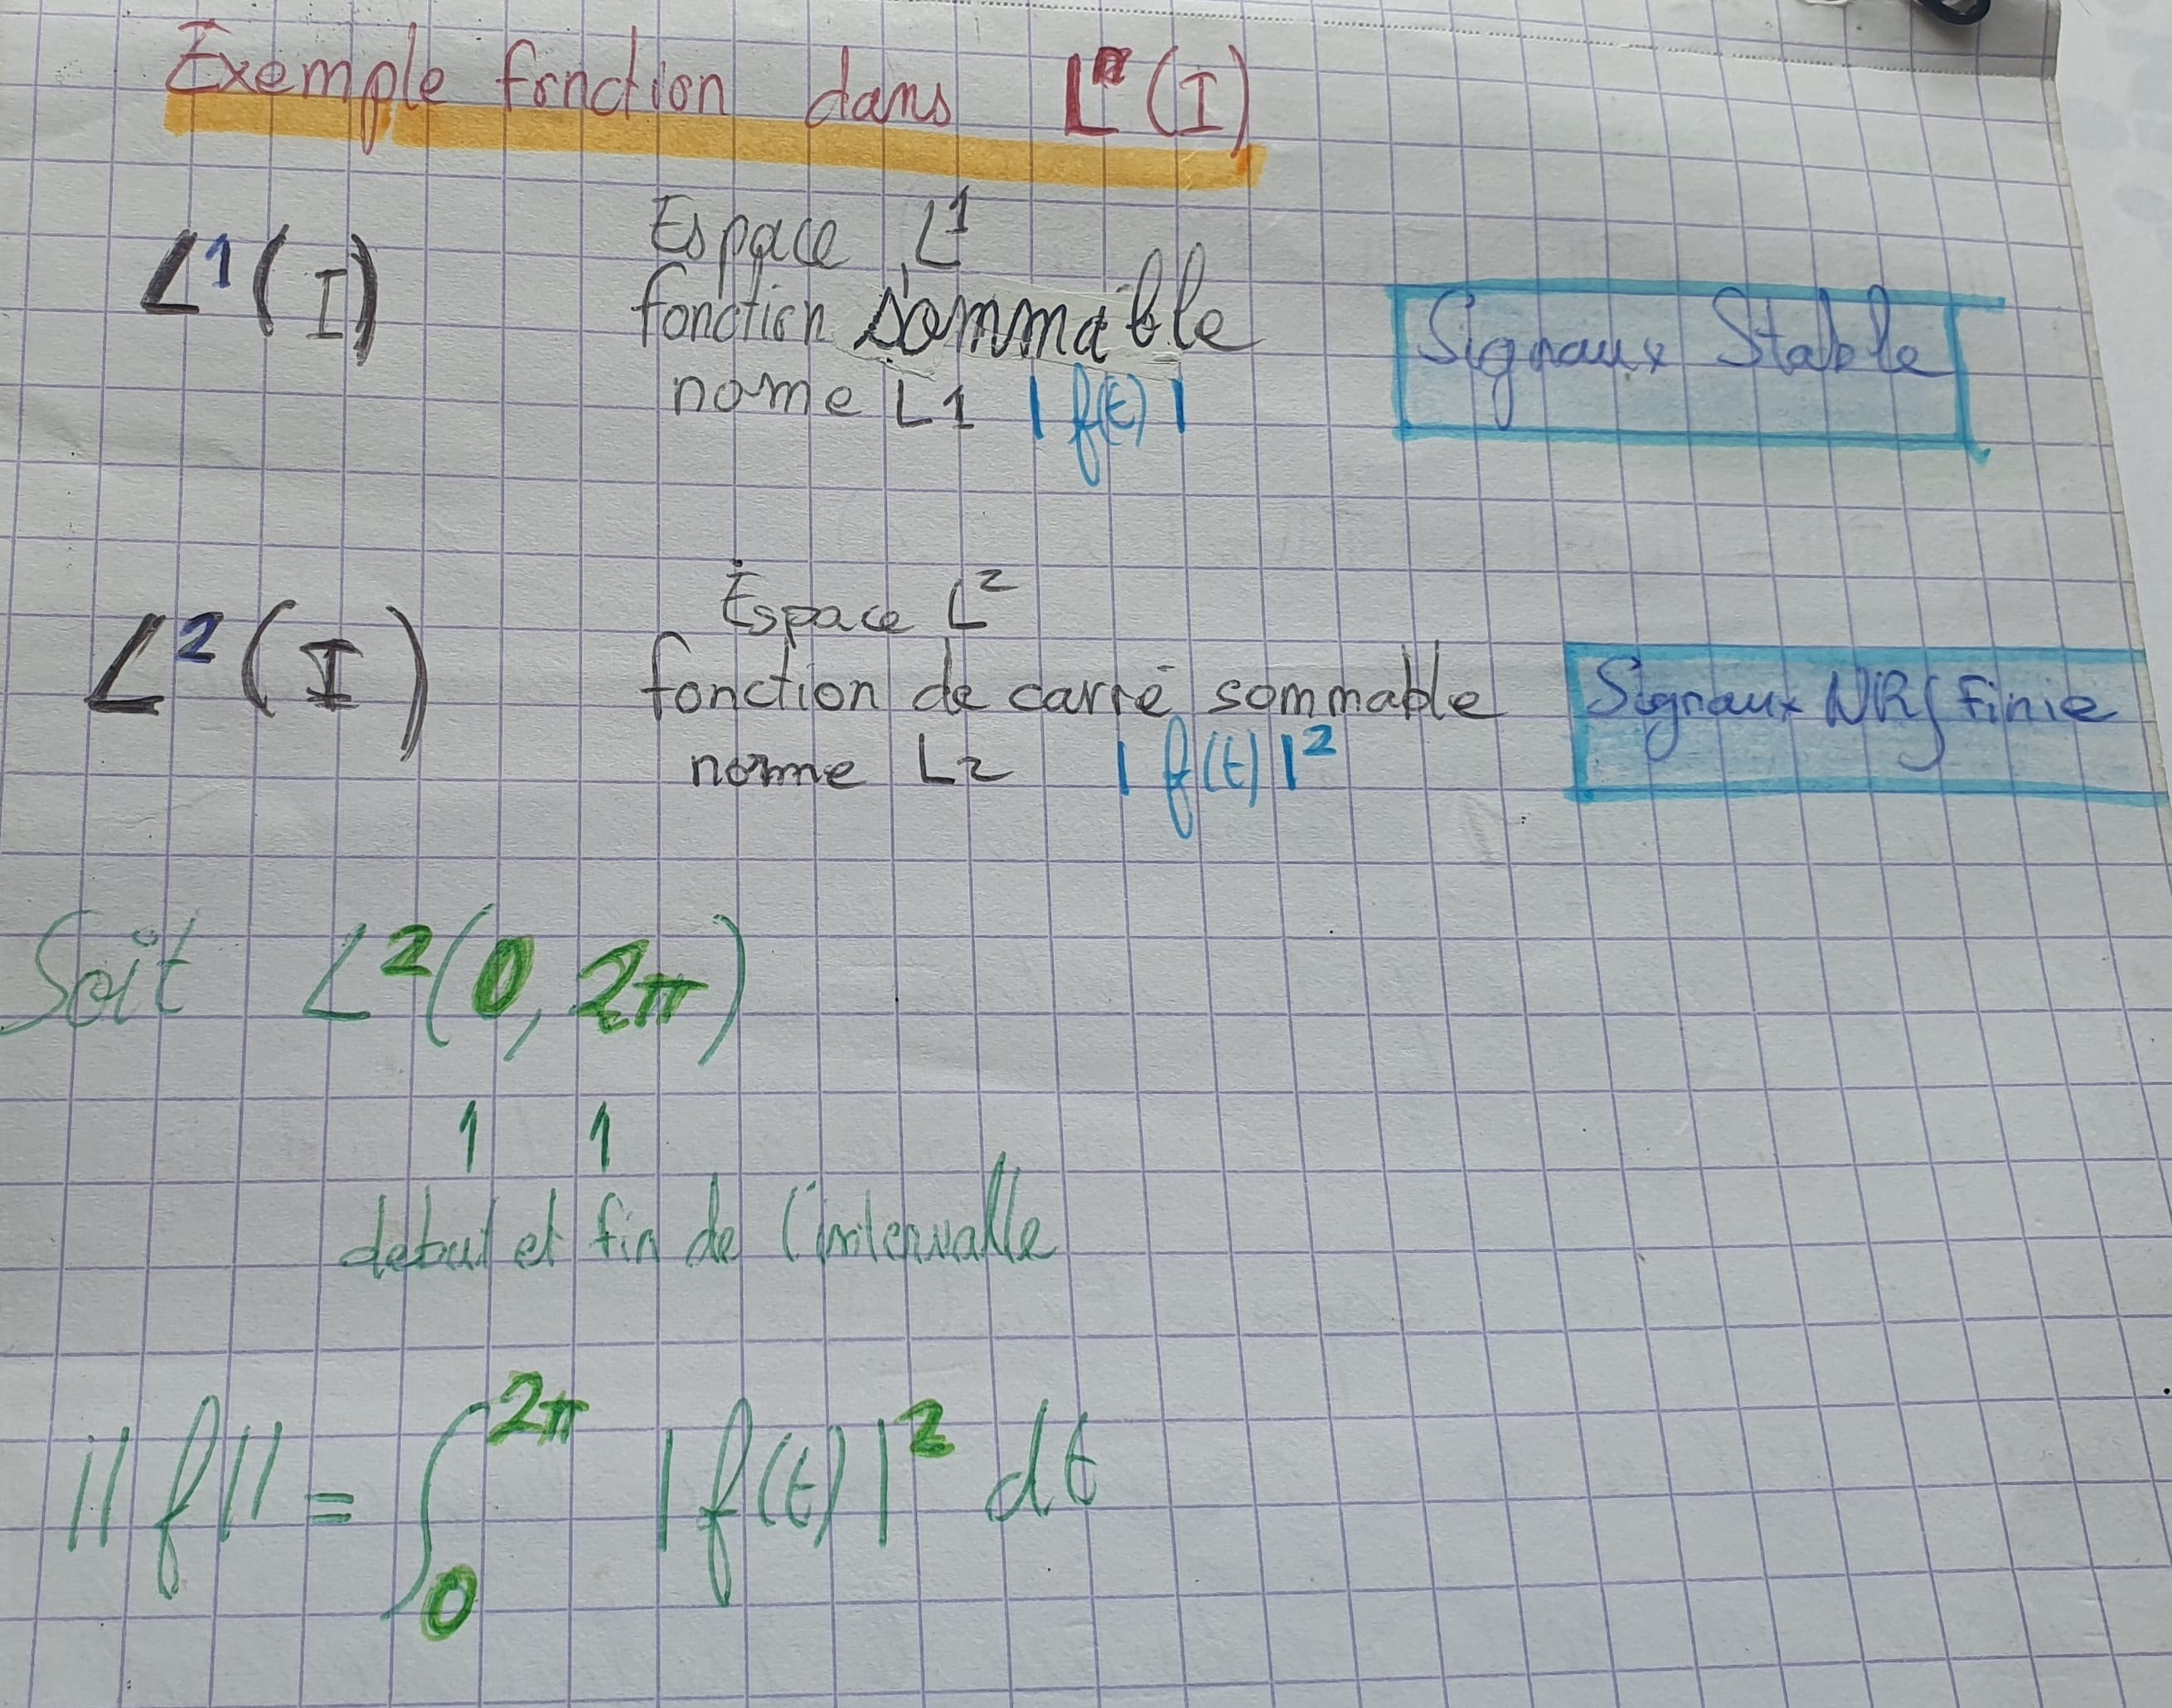 Exemple fonction dans Lⁿ(I)
L¹(I)
Espace L¹
fonction sommable
nome L1 |f(t)|
Signaux Stable
L²(I)
Espace L²
fonction de carré sommable
norme L2 |f(t)|²
Signaux NRJ finie
Soit L²(0, 2π)
1 1
debut et fin de l'intervalle
||f|| = ∫₀^2π |f(t)|² dt